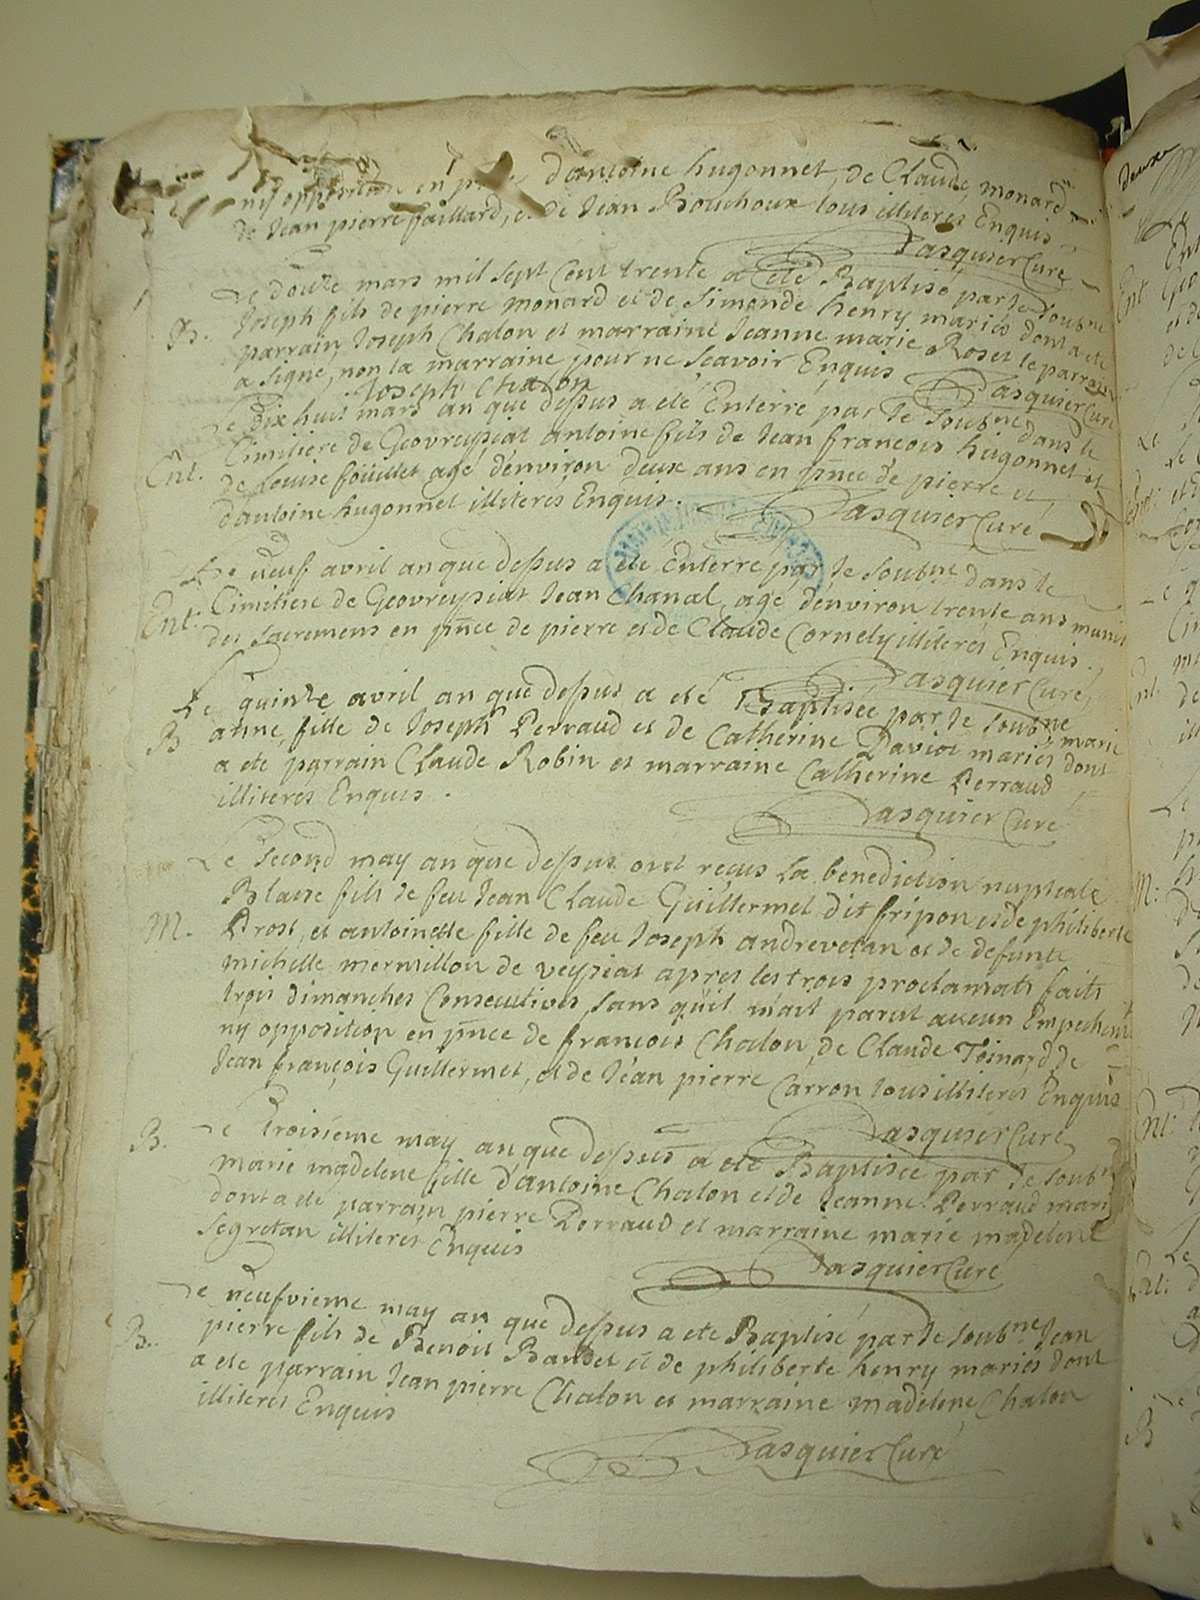 ny opposition en d'antoine hugonnet, de Claude monard
de Jean pierre faillard, et de Jean Bouchoux tous illiteres Enquis
Pasquier Curé
Le douze mars mil sept Cent trente a été Baptisé par le soubne
B. Joseph fils de pierre monard et de Simonde henry mariés dont a ete
parrain Joseph Chalon et marraine Jeanne marie Roset le parrain
a signé, non la marraine pour ne scavoir Enquis
Joseph Chalon Pasquier Curé
Le dix huit mars an que dessus a été Enterré par le soubne dans le
Ent. Cimitiere de Geovreyssiat antoine fils de Jean francois hugonnet et
de Louise foüillet agé d'environ deux ans en pnce de pierre et
d'antoine hugonnet illiteres Enquis.
Pasquier Curé
Le neuf avril an que dessus a été Enterré par le soubne dans le
Ent. Cimitiere de Geovreyssiat Jean Chanal, agé d'environ trente ans munis
des sacremens en pnce de pierre et de Claude Cornely illiteres Enquis.
Pasquier Curé
Le quinze avril an que dessus a eté Baptisée par le soubne marie
B anne fille de Joseph Perraud et de Catherine Daviot mariés dont
a eté parrain Claude Robin et marraine Catherine Perraud
illiteres Enquis.
Pasquier Curé
Le second may an que dessus ont reçus la benediction nuptiale
Blaise fils de feu Jean Claude Guillermet dit fripon et de philiberte
M. Prost, et antoinette fille de feu Joseph andrevetan et de defunte
michelle mermillon de veysiat apres les trois proclamats faits
trois dimanches Consecutives sans qu'il n'ait parut aucun Empechemt
ny opposition en pnce de francois Chalon, de Claude Toinard de
Jean françois Guillermet, et de Jean pierre Carron tous illiteres Enquis
Pasquier Curé
B. Le troisième may an que dessus a eté Baptisée par le soubne
marie madelene fille d'antoine Chalon et de Jeanne Perraud mariés
dont a eté parrain pierre Perraud et marraine marie madelene
Segretan illiteres Enquis
Pasquier Curé
Le neufvieme may an que dessus a eté Baptisé par le soubne Jean
B. pierre fils de Benoit Bandet et de philiberte henry mariés dont
a eté parrain Jean pierre Chalon et marraine madelene Chalon
illiteres Enquis
Pasquier Curé